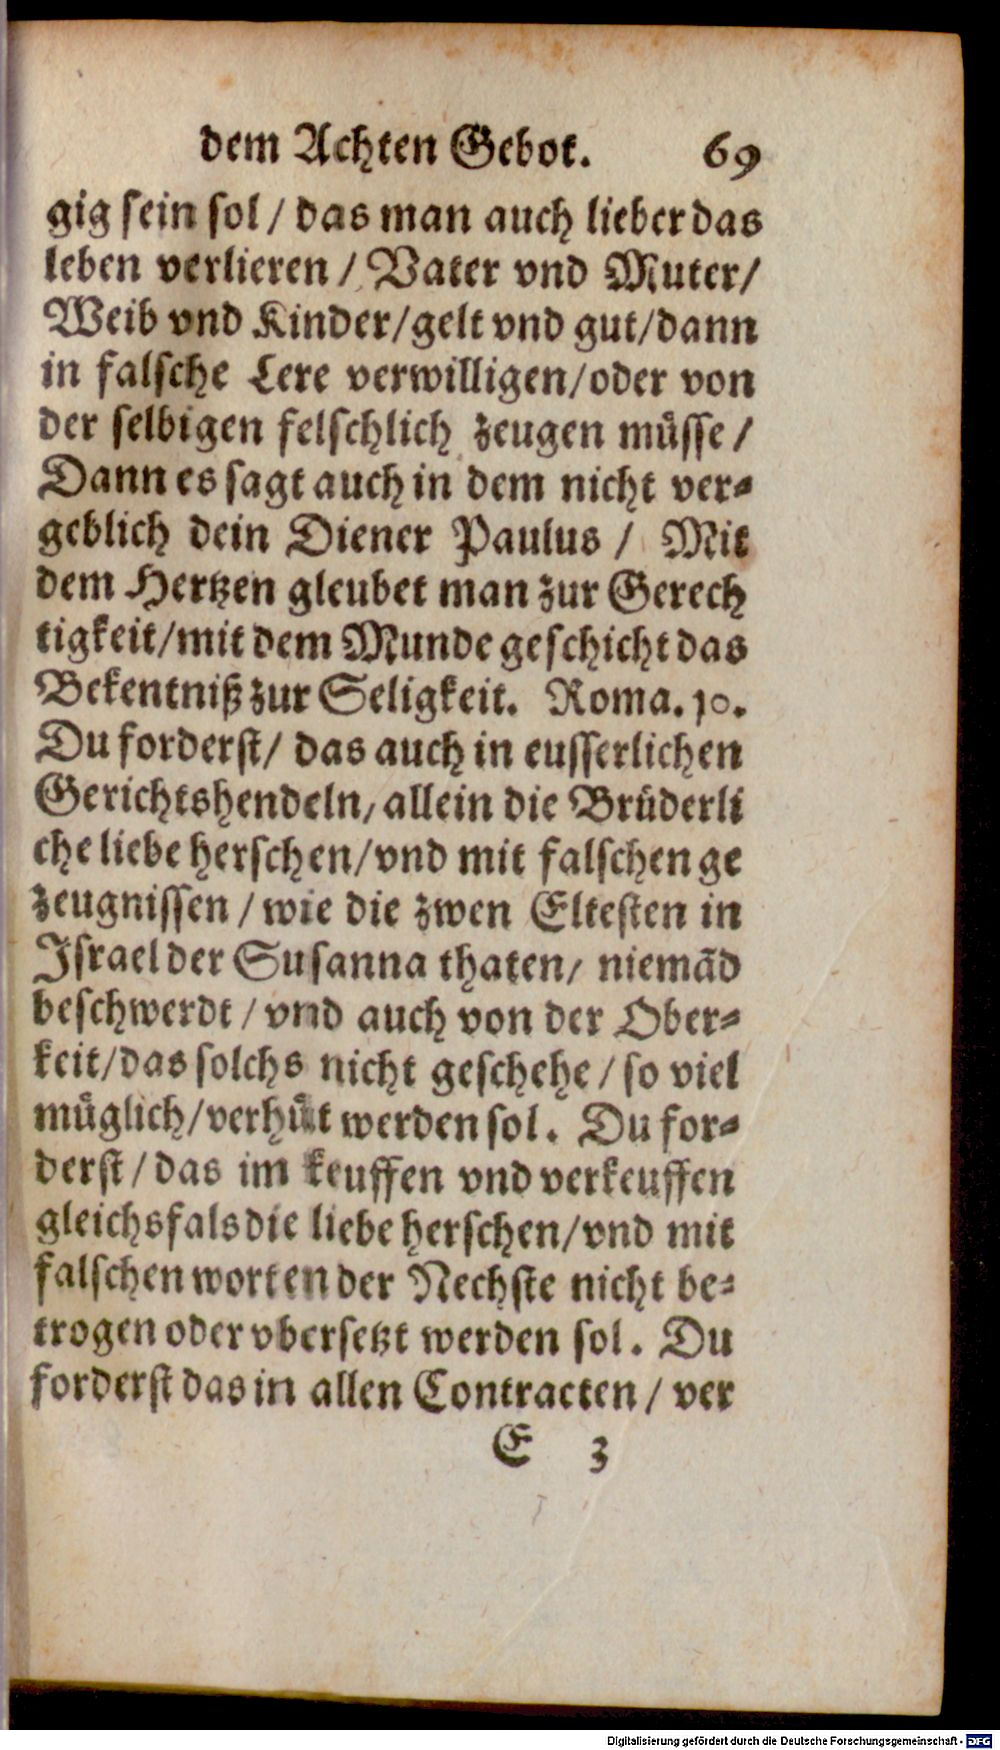 dem Achten Gebot. 69
gig sein sol / das man auch lieber das
leben verlieren / Vater vnd Muter /
Weib vnd Kinder / gelt vnd gut / dann
in falsche Lere verwilligen / oder von
der selbigen felschlich zeugen müsse /
Dann es sagt auch in dem nicht ver-
geblich dein Diener Paulus / Mit
dem Hertzen gleubet man zur Gerech
tigkeit / mit dem Munde geschicht das
Bekentniß zur Seligkeit. Roma. 10.
Du forderst / das auch in eusserlichen
Gerichtshendeln, allein die Brüderli
che liebe herschen / vnd mit falschen ge
zeugnissen / wie die zwen Eltesten in
Israel der Susanna thaten, niemãd
beschwerdt / vnd auch von der Ober-
keit / das solchs nicht geschehe / so viel
müglich / verhüt werden sol. Du for-
derst / das im keuffen vnd verkeuffen
gleichsfals die liebe herschen / vnd mit
falschen worten der Nechste nicht be-
trogen oder vbersetzt werden sol. Du
forderst das in allen Contracten / ver
E 3
Digitalisierung gefördert durch die Deutsche Forschungsgemeinschaft - DFG